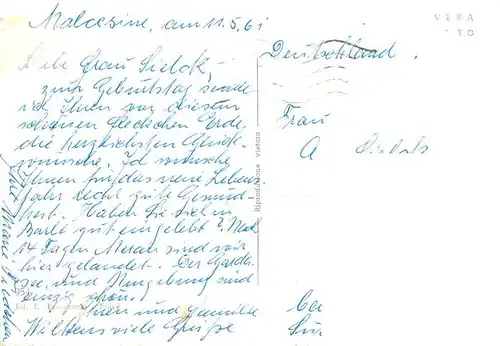 Malcesine, am 11.5.61
Liebe Frau Sielck,
zum Geburtstag sende
ich Ihnen von diesem
schönen Fleckchen Erde
die herzlichsten Glück-
wünsche. Ich wünsche
Ihnen für das neue Lebens-
jahr recht gute Gesund-
heit. Haben Sie sich in
gut eingelebt? Nach
14 Tagen Meran sind wir
hier gelandet. Der Garda-
see und Umgebung sind
einzig schön!
Ihnen und Familie
viele Grüße
Ihre
VERA
Deutschland.
Frau
A
Riproduzione vietata
Ed. F.